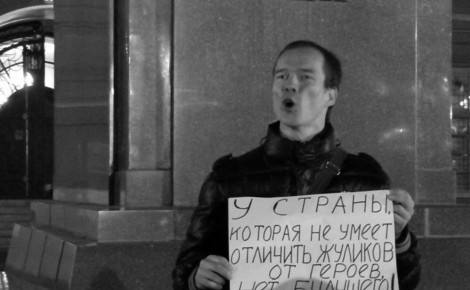 У СТРАНЫ,
КОТОРАЯ НЕ УМЕЕТ
ОТЛИЧИТЬ ЖУЛИКОВ
ОТ ГЕРОЕВ,
НЕТ БУДУЩЕГО!